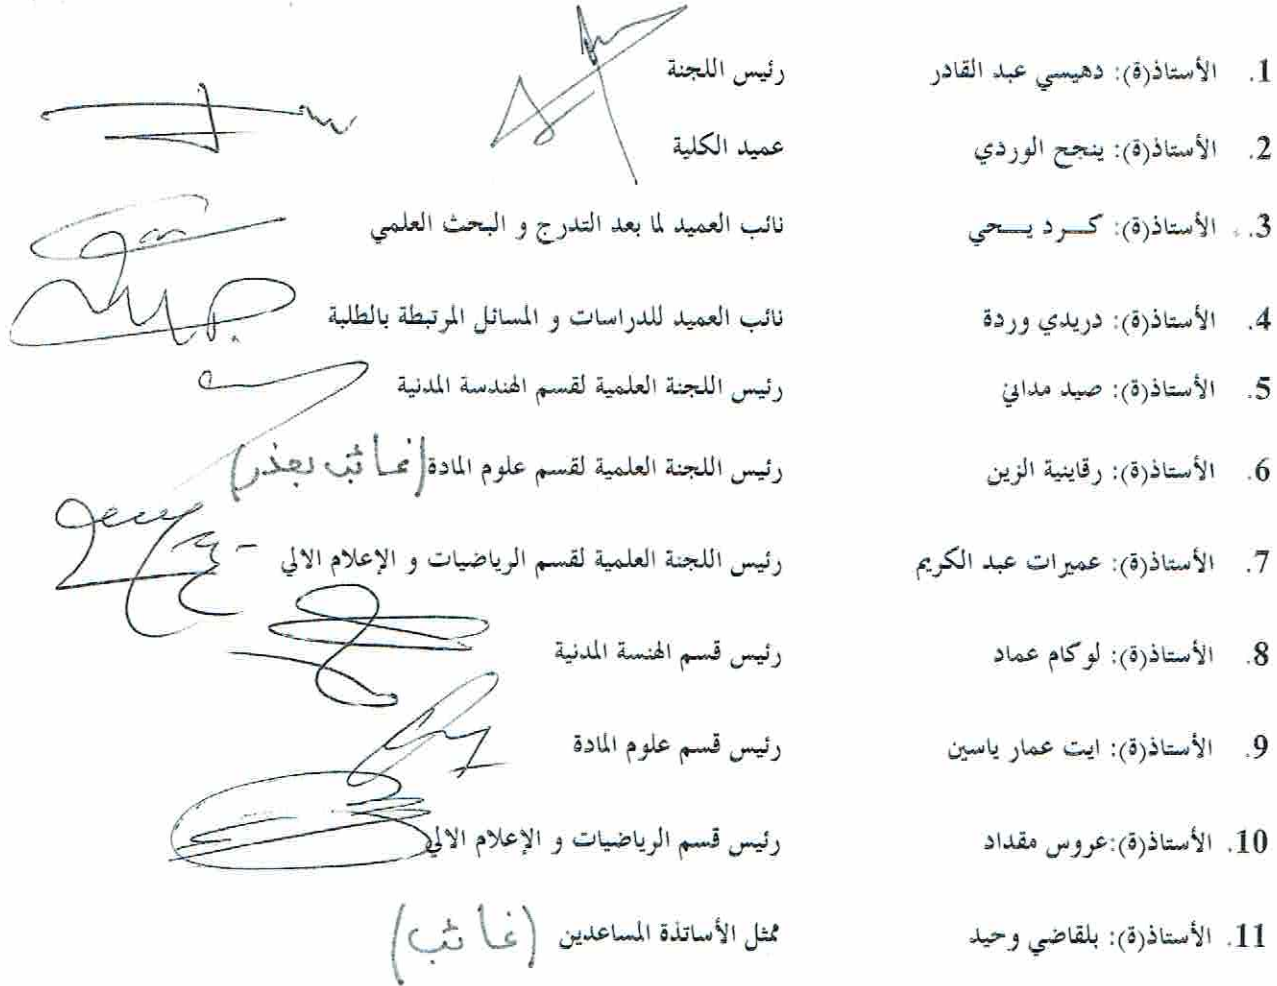 1. الأستاذ(ة): دهيسي عبد القادر رئيس اللجنة
2. الأستاذ(ة): ينجح الوردي عميد الكلية
3. الأستاذ(ة): كـــرد يـــحي نائب العميد لما بعد التدرج و البحث العلمي
4. الأستاذ(ة): دريدي وردة نائب العميد للدراسات و المسائل المرتبطة بالطلبة
5. الأستاذ(ة): صيد مداني رئيس اللجنة العلمية لقسم الهندسة المدنية
6. الأستاذ(ة): رقاينية الزين رئيس اللجنة العلمية لقسم علوم المادة (غائب بعذر)
7. الأستاذ(ة): عميرات عبد الكريم رئيس اللجنة العلمية لقسم الرياضيات و الإعلام الالي
8. الأستاذ(ة): لوكام عماد رئيس قسم الهنسة المدنية
9. الأستاذ(ة): ايت عمار ياسين رئيس قسم علوم المادة
10. الأستاذ(ة):عروس مقداد رئيس قسم الرياضيات و الإعلام الالي
11. الأستاذ(ة): بلقاضي وحيد ممثل الأساتذة المساعدين (غائب)